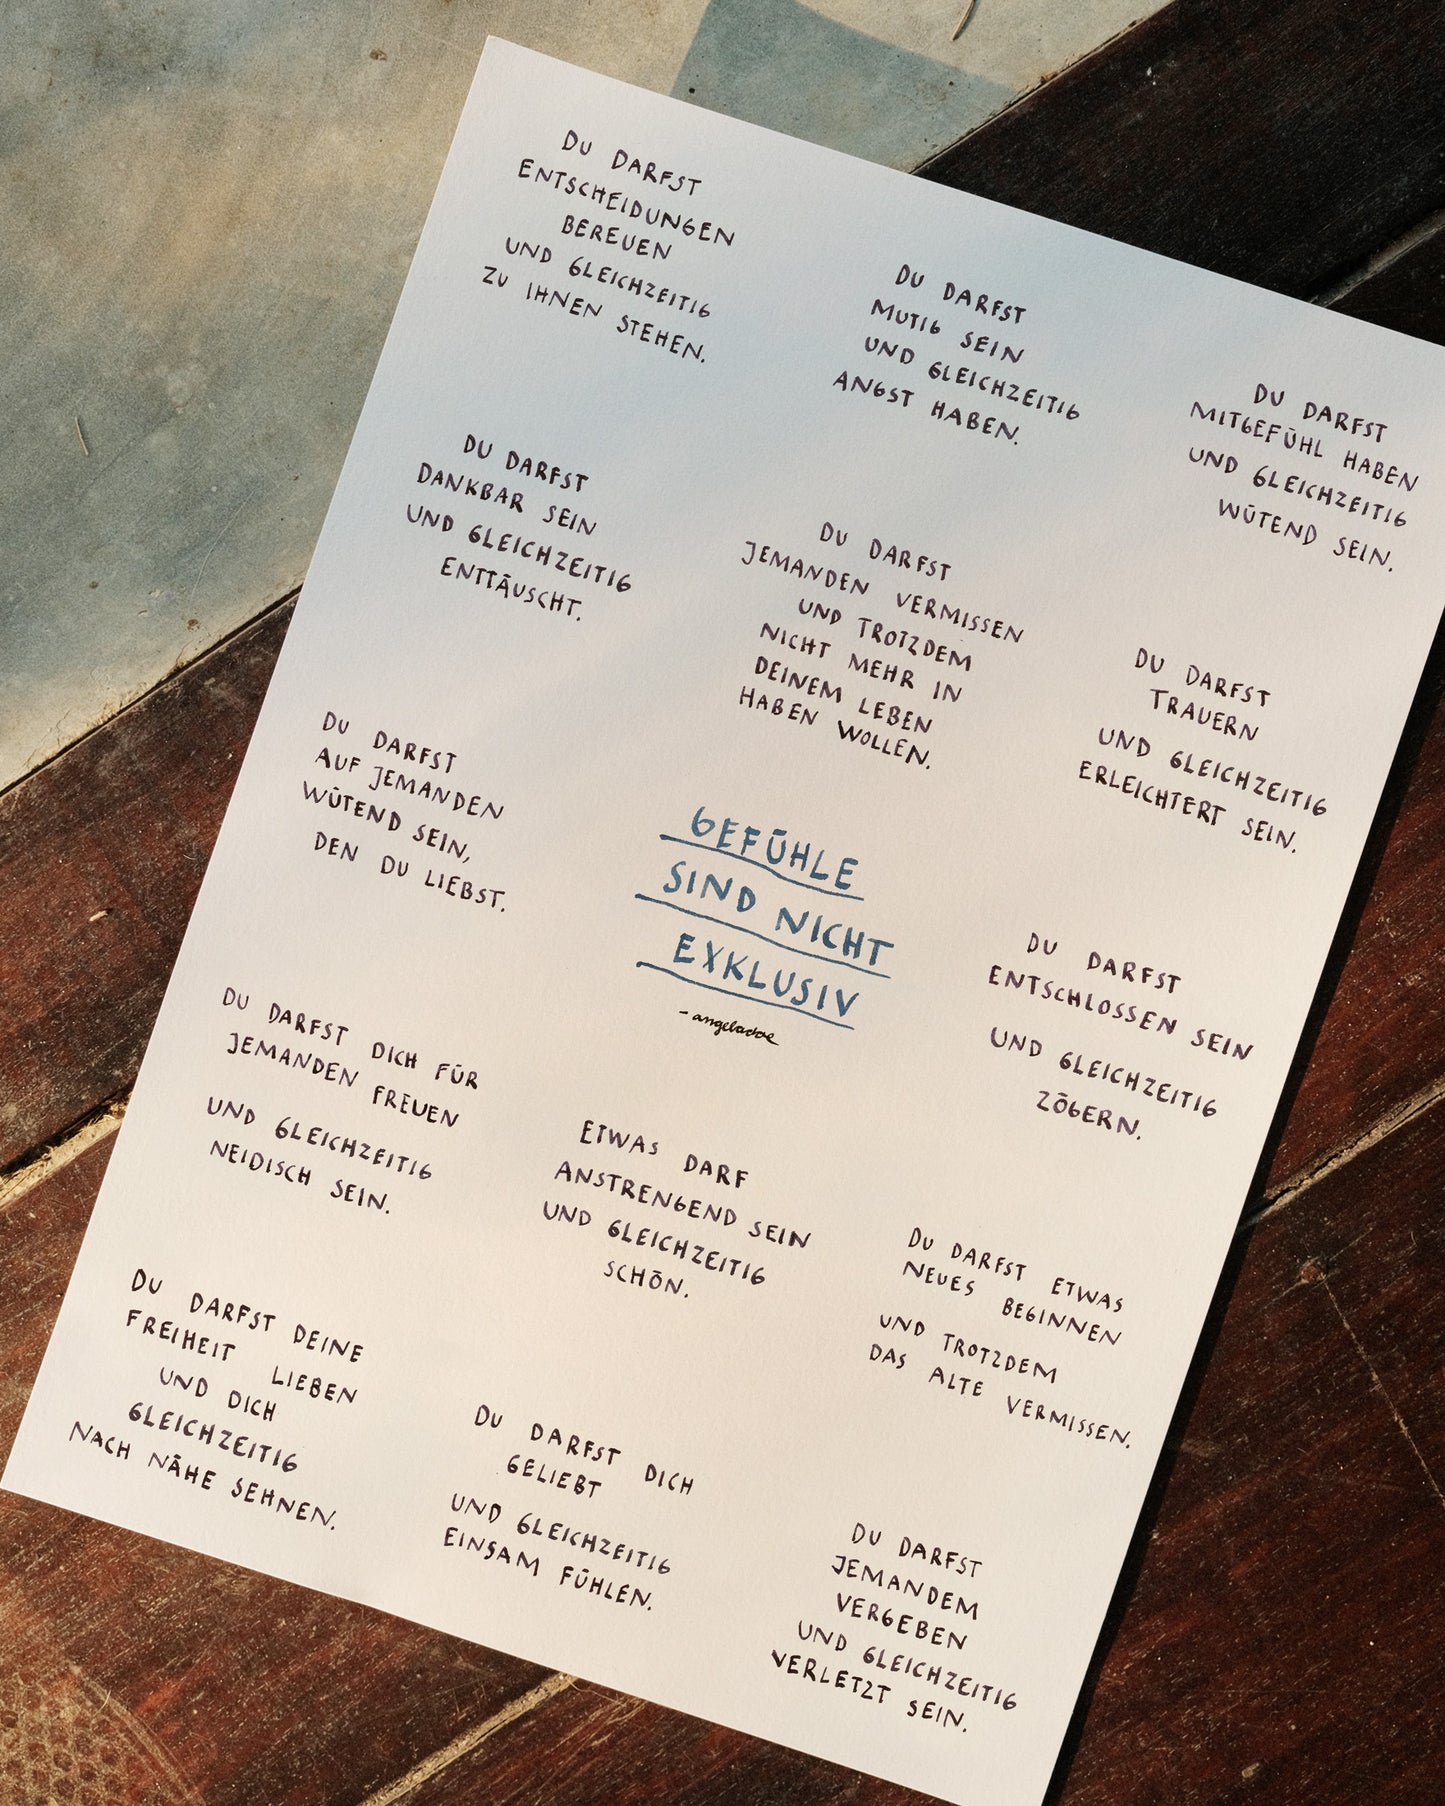 DU DARFST
ENTSCHEIDUNGEN
BEREUEN
UND GLEICHZEITIG
ZU IHNEN STEHEN.
DU DARFST
MUTIG SEIN
UND GLEICHZEITIG
ANGST HABEN.
DU DARFST
MITGEFÜHL HABEN
UND GLEICHZEITIG
WÜTEND SEIN.
DU DARFST
DANKBAR SEIN
UND GLEICHZEITIG
ENTTÄUSCHT.
DU DARFST
JEMANDEN VERMISSEN
UND TROTZDEM
NICHT MEHR IN
DEINEM LEBEN
HABEN WOLLEN.
DU DARFST
TRAUERN
UND GLEICHZEITIG
ERLEICHTERT SEIN.
DU DARFST
AUF JEMANDEN
WÜTEND SEIN,
DEN DU LIEBST.
GEFÜHLE
SIND NICHT
EXKLUSIV
- angeladoe
DU DARFST
ENTSCHLOSSEN SEIN
UND GLEICHZEITIG
ZÖGERN.
DU DARFST DICH FÜR
JEMANDEN FREUEN
UND GLEICHZEITIG
NEIDISCH SEIN.
ETWAS DARF
ANSTRENGEND SEIN
UND GLEICHZEITIG
SCHÖN.
DU DARFST ETWAS
NEUES BEGINNEN
UND TROTZDEM
DAS ALTE VERMISSEN.
DU DARFST DEINE
FREIHEIT LIEBEN
UND DICH
GLEICHZEITIG
NACH NÄHE SEHNEN.
DU DARFST DICH
GELIEBT
UND GLEICHZEITIG
EINSAM FÜHLEN.
DU DARFST
JEMANDEM
VERGEBEN
UND GLEICHZEITIG
VERLETZT SEIN.